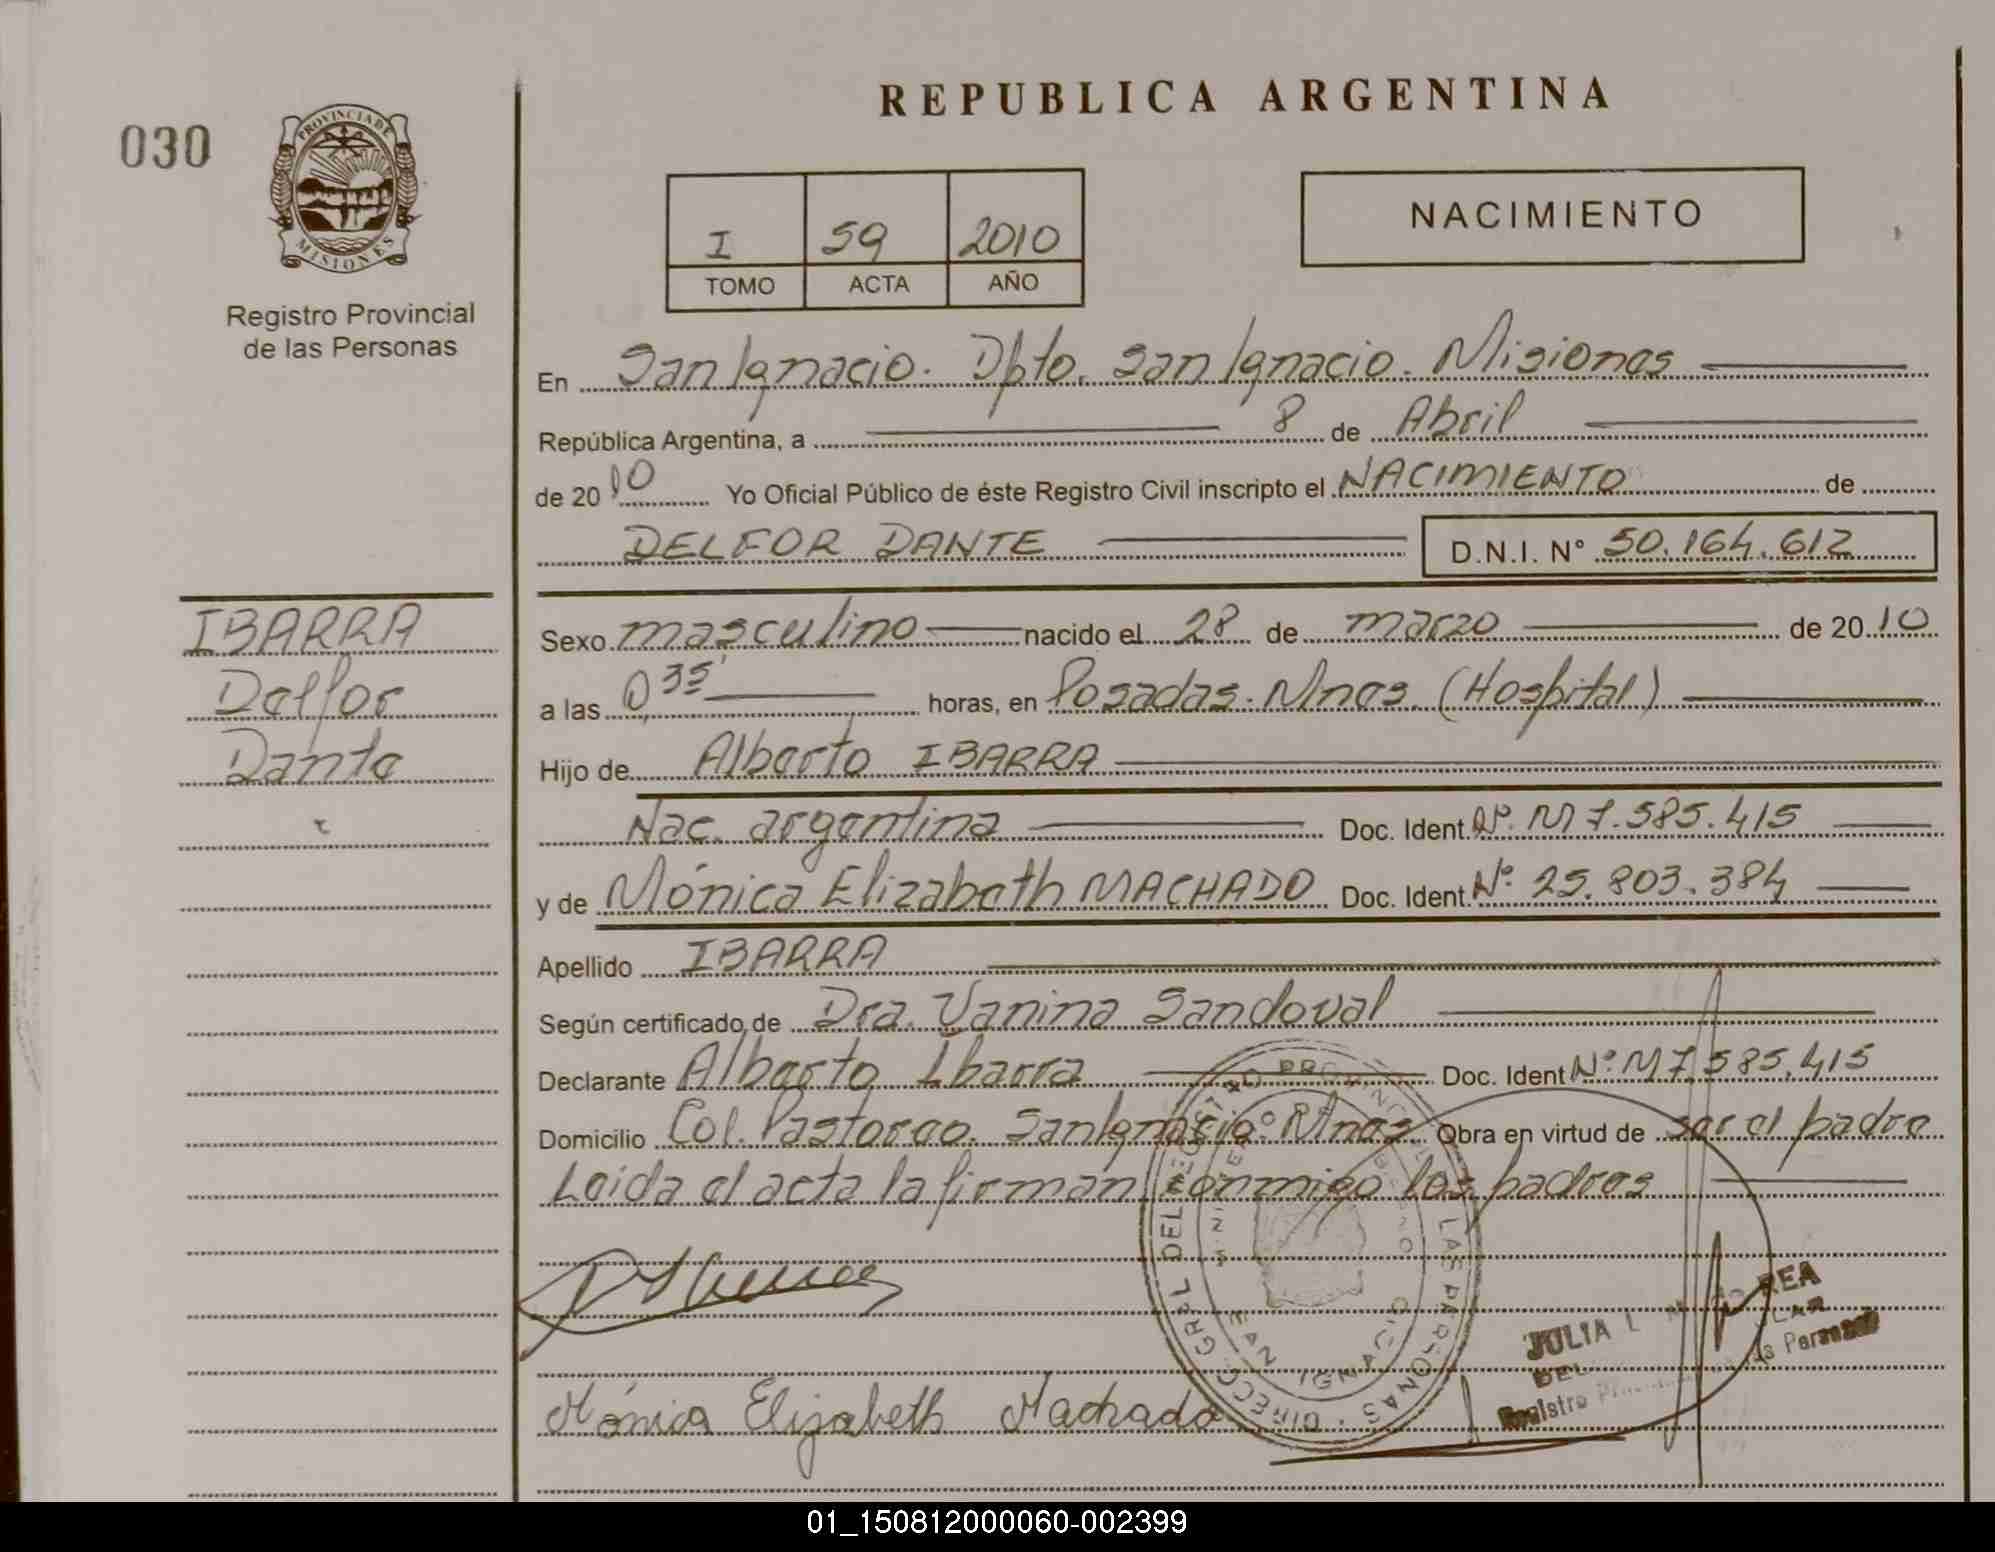 REPUBLICA ARGENTINA
030
PROVINCIA DE
MISIONES
Registro Provincial
de las Personas
I 59 2010
TOMO ACTA AÑO
NACIMIENTO
En San Ignacio. Dpto. San Ignacio. Misiones
República Argentina, a 8 de Abril
de 2010 Yo Oficial Público de éste Registro Civil inscripto el NACIMIENTO de
DELFOR DANTE D.N.I. N° 50.164.612
IBARRA
Delfor
Dante
Sexo masculino nacido el 28 de marzo de 2010
a las 0,35' horas, en Posadas. Mnes. (Hospital)
Hijo de Alberto IBARRA
Nac. argentina Doc. Ident. N°. M 7.585.415
y de Mónica Elizabeth MACHADO Doc. Ident. N° 25.803.384
Apellido IBARRA
Según certificado de Dra. Vanina Sandoval
Declarante Alberto Ibarra Doc. Ident N° M 7.585.415
Domicilio Col. Pastoreo. San Ignacio. Mnes. Obra en virtud de ser el padre
Leida el acta la firman conmigo los padres
DIRECC. GRAL DEL REGISTRO PROVINCIAL DE LAS PERSONAS
JULIA L
Registro
Mónica Elizabeth Machado
01_150812000060-002399